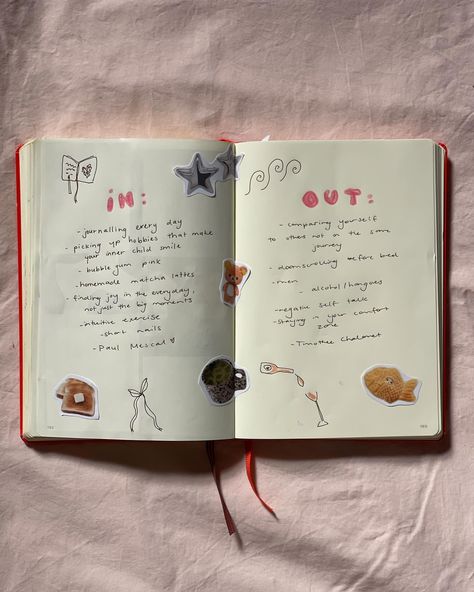 IN:
- journalling every day
- picking up hobbies that make
your inner child smile
- bubble gum pink
- homemade matcha lattes
- finding joy in the everyday,
not just the big moments
- intuitive exercise
- short nails
- Paul Mescal
OUT:
- comparing yourself
to others not on the same
journey
- doomscrolling before bed
- men - alcohol/hangovers
- negative self talk
- staying in your comfort
zone
- Timothee Chalamet